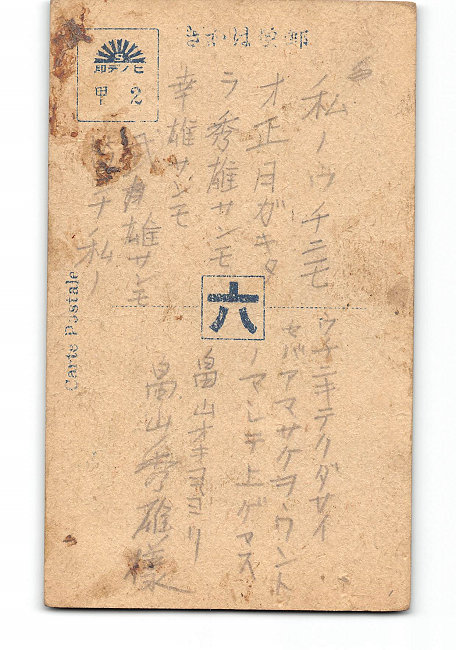 きかは便郵
ヒノデ印
甲 2
私ノウチニモ
オ正月ガキタ
ラ秀雄サンモ
幸雄サンモ
雄サンモ
ナ私ノ
六
ウチニキテクダサイ
アマサケヲウント
ノマシテ上ゲマス
畠山
ヨリ
畠山秀雄様
Carte Postale